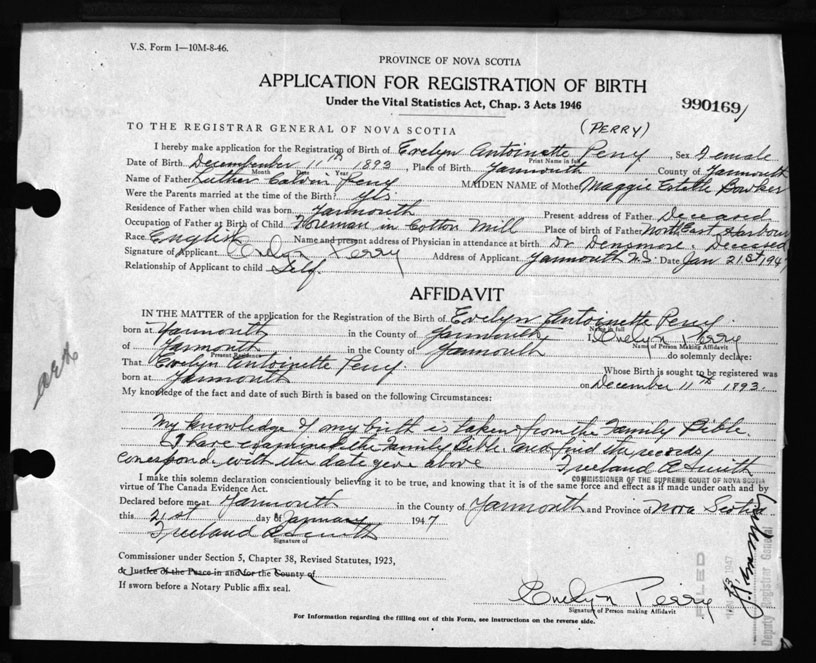 V.S. Form 1—10M-8-46.
PROVINCE OF NOVA SCOTIA
APPLICATION FOR REGISTRATION OF BIRTH
Under the Vital Statistics Act, Chap. 3 Acts 1946
990169
TO THE REGISTRAR GENERAL OF NOVA SCOTIA (PERRY)
I hereby make application for the Registration of Birth of Evelyn Antoinette Perry, Sex Female
Print Name in full
Date of Birth December 11th 1893, Place of Birth Yarmouth County of Yarmouth
Month Date Year
Name of Father Luther Calvin Perry MAIDEN NAME of Mother Maggie Estelle Bowker
Were the Parents married at the time of the Birth? yes
Residence of Father when child was born Yarmouth Present address of Father Deceased
Occupation of Father at Birth of Child Foreman in Cotton Mill Place of birth of Father North East Harbour
Race English Name and present address of Physician in attendance at birth Dr Densmore. Deceased
Signature of Applicant Evelyn Perry Address of Applicant Yarmouth N.S. Date Jan 21st 194
Relationship of Applicant to child Self.
AFFIDAVIT
IN THE MATTER of the application for the Registration of the Birth of Evelyn Antoinette Perry
Name in full
born at Yarmouth in the County of Yarmouth I, Evelyn Perry
Name of Person Making Affidavit
of Yarmouth in the County of Yarmouth do solemnly declare:
Present Residence
That Evelyn Antoinette Perry. Whose Birth is sought to be registered was
born at Yarmouth on December 11th 1893.
My knowledge of the fact and date of such Birth is based on the following Circumstances:
My knowledge of my birth is taken from the Family Bible.
I have examined the Family Bible and find the records
correspond with the date given above Freeland A Smith
COMMISSIONER OF THE SUPREME COURT OF NOVA SCOTIA
I make this solemn declaration conscientiously believing it to be true, and knowing that it is of the same force and effect as if made under oath and by
virtue of The Canada Evidence Act.
Declared before me at Yarmouth in the County of Yarmouth and Province of Nova Scotia
this 21st day of January 1947
Freeland A Smith
Signature of
Commissioner under Section 5, Chapter 38, Revised Statutes, 1923,
or Justice of the Peace in and for the County of
If sworn before a Notary Public affix seal.
Evelyn Perry
Signature of Person making Affidavit
For Information regarding the filling out of this Form, see instructions on the reverse side.
FILED
Deputy Registrar General